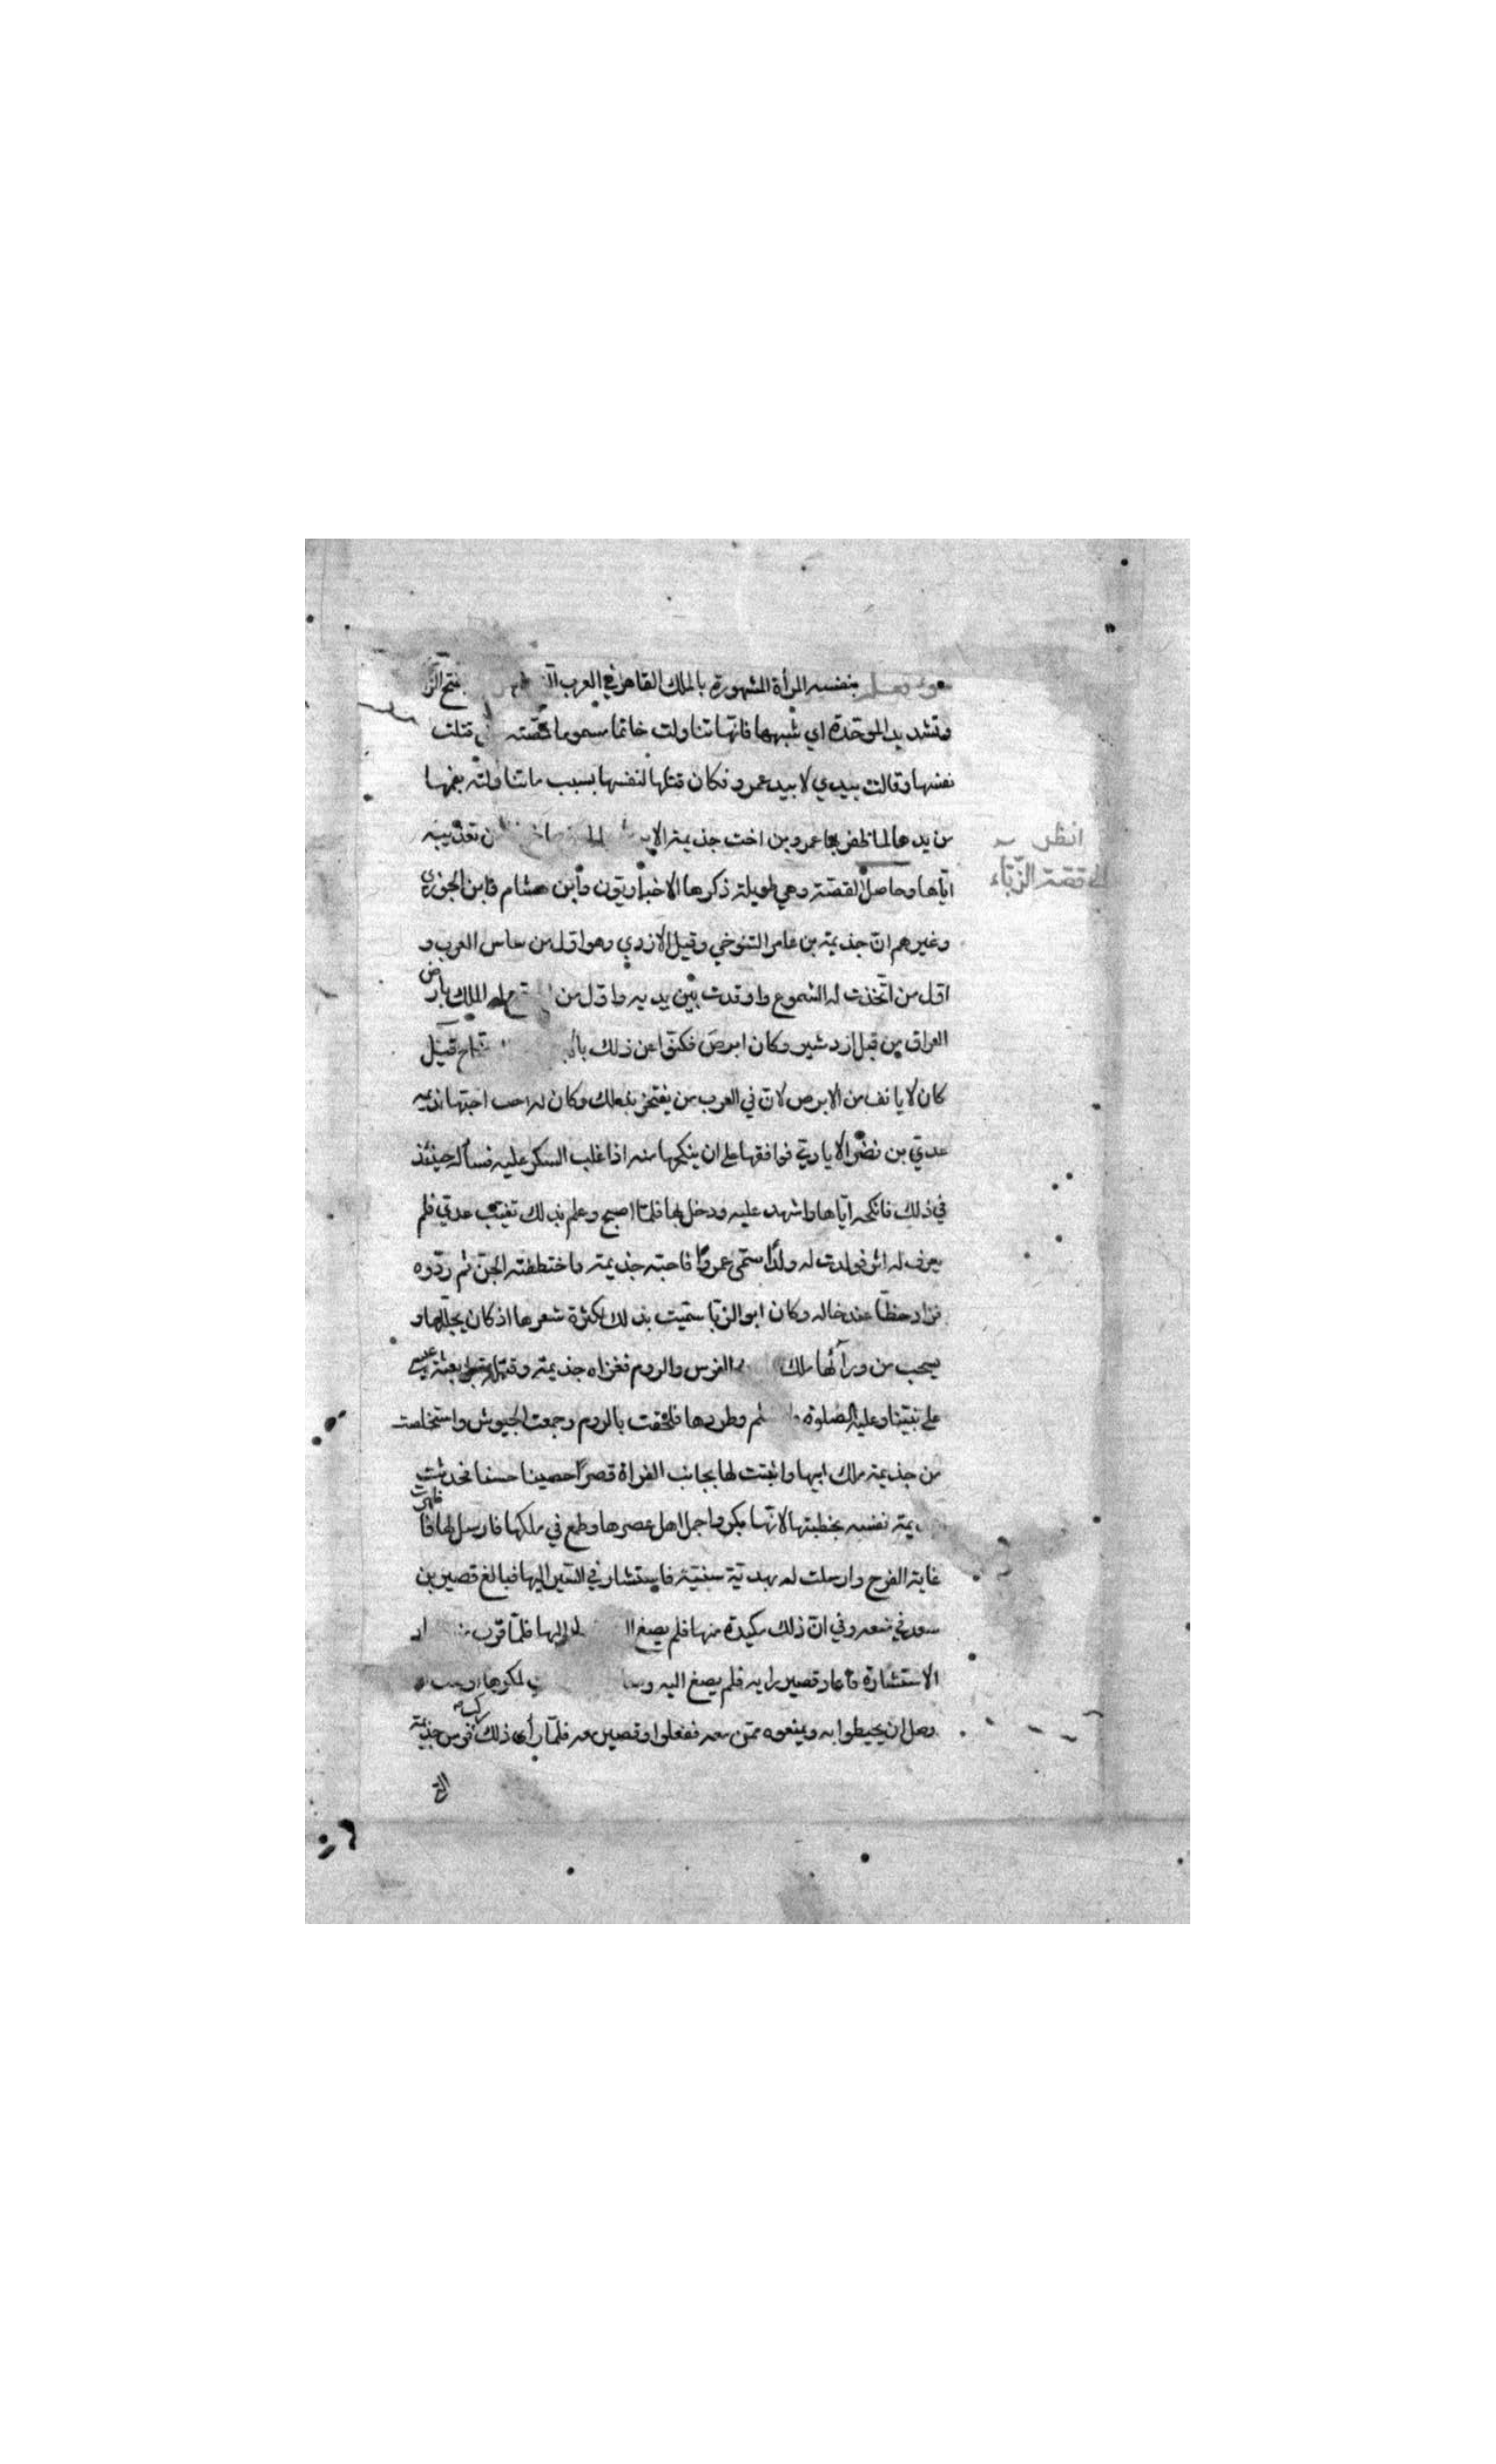 بنفسه المرأة المشهورة بالملك القاهر في العرب بفتح الزا
وتشديد الموحدة اي شبهها فانها تناولت خاتما مسموما فمصته قتلت
نفسها وقالت بيدي لا بيد عمرو فكان قتلها لنفسها بسبب ما تناولته بفمها
من يدها لما ظفر بها عمرو بن اخت جذيمة تعذيبه
انظر
قصة الزباء
اياها وحاصل القصة وهي طويلة ذكرها الاخباريون وابن هشام وابن الجوزي
وغيرهم ان جذيمة بن عامر التنوخي وقيل الازدي وهو اول من ساس العرب و
اول من اتخذت له الشموع واوقدت بين يديه واول من الملك بارض
العراق من قبل ازدشير وكان ابرص فكنوا عن ذلك قيل
كان لا يانف من الابرص لان في العرب من يفتخر بذلك وكان له اخت
عدي بن نضر الايادي فوافقها على ان ينكحها منه اذا غلب السكر عليه فسأله حينئذ
في ذلك فانكحه اياها واشهد عليه ودخل بها فلما اصبح وعلم بذلك تغيب عدي فلم
يعرف له اثر فولدت له ولدا سمي عمروا فاحبه جذيمة واختطفته الجن ثم ردوه
فزاد حظا عند خاله وكان ابو الزبا سميت بذلك لكثرة شعرها اذ كان يجللها و
يسحب من ورآئها ملك الفرس والروم فغزاه جذيمة وقتله بعثة عيسى
على نبينا وعليه الصلوة وطردها فلحقت بالروم وجمعت الجيوش واستخلصت
من جذيمة ملك ابيها وابتنت لها بجانب الفراة قصرا حصينا حسنا فحدثت
نفسه بخطبتها لانها بكر واجمل اهل عصرها وطمع في ملكها فارسل لها فاظهرت
غاية الفرح وارسلت له بهدية سنية فاستشار في السير اليها فبالغ قصير بن
سعد في ان ذلك مكيدة منها فلم يصغ اليها فلما قرب
الاستشارة فاعاد قصير رايه فلم يصغ اليه لمكرها
وصل ان يحيطوا به ويمنعوه ممن معه ففعلوا وقصير معه فلما رأى ذلك ركب فرس جذيمة